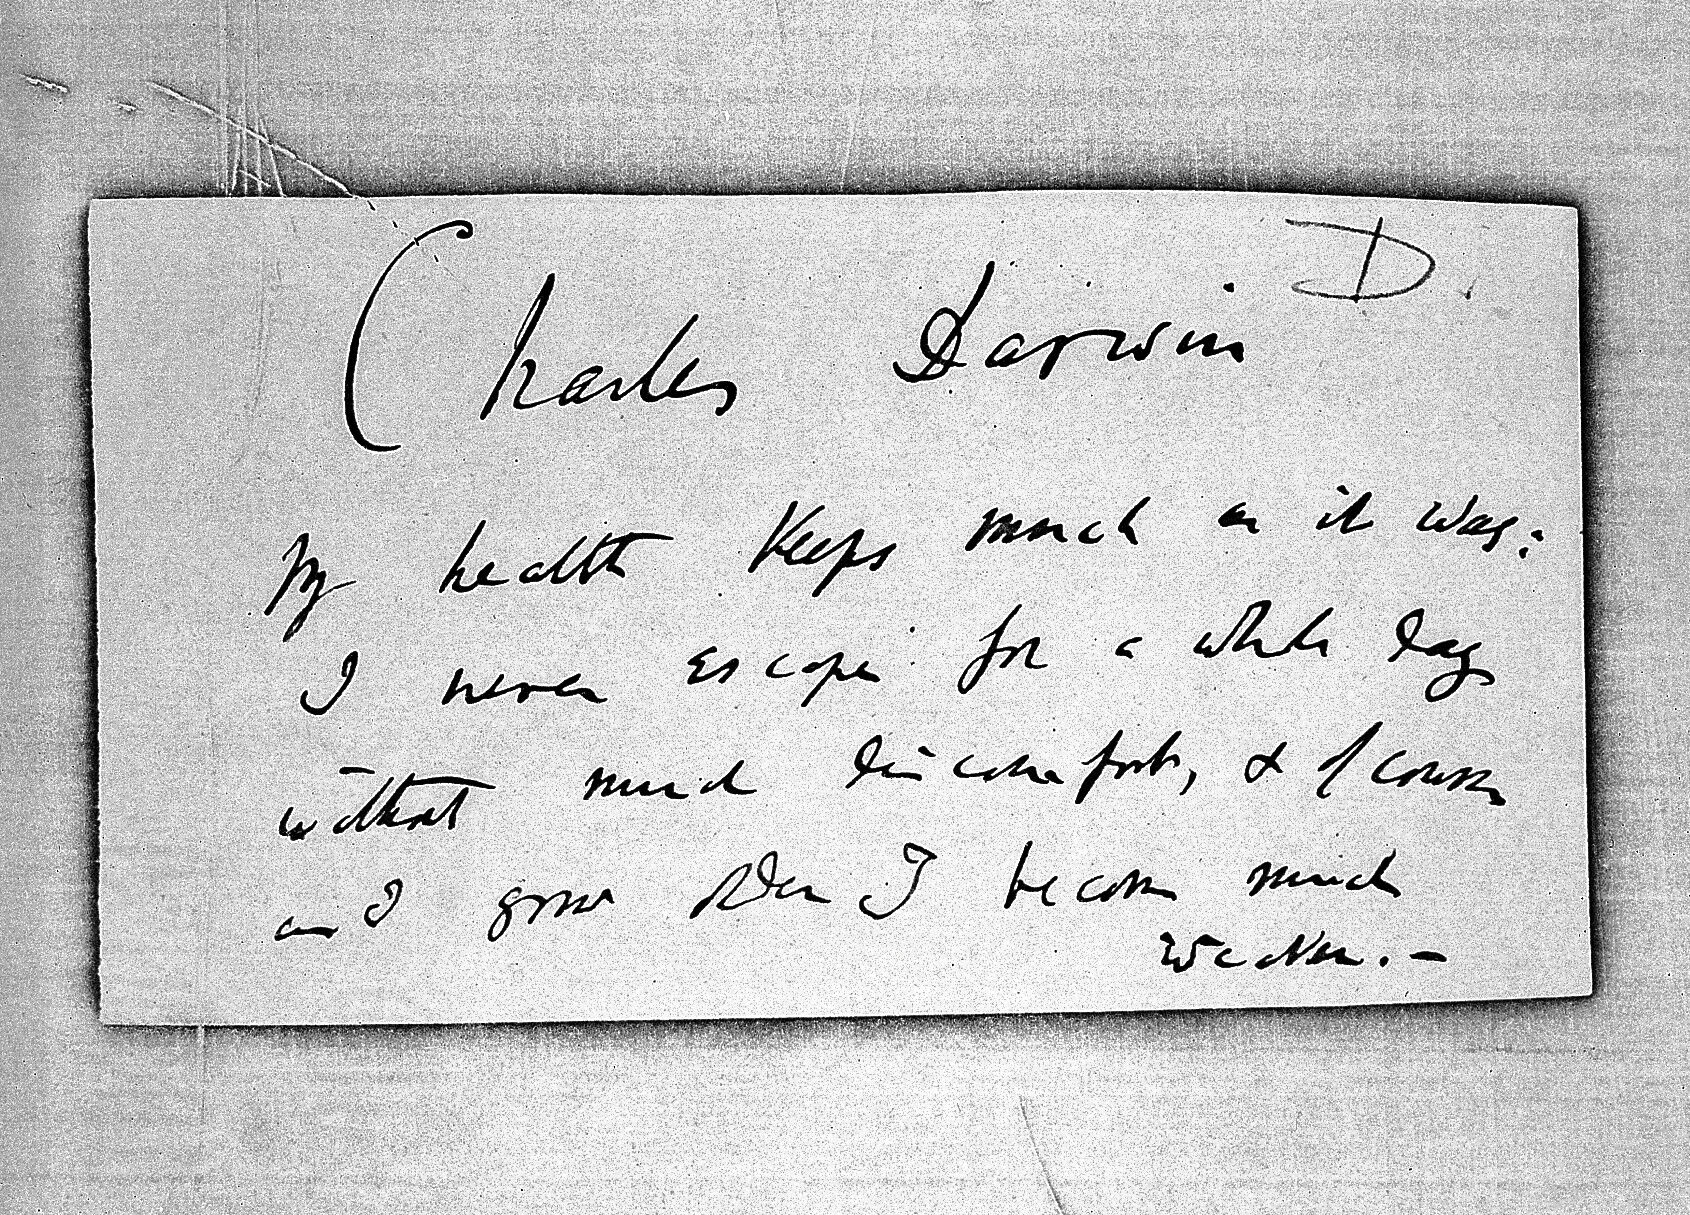 D.
Charles Darwin
My health keeps much as it was;
I never escape for a whole day
without much discomfort, & of course
as I grow older I become much
weaker. —